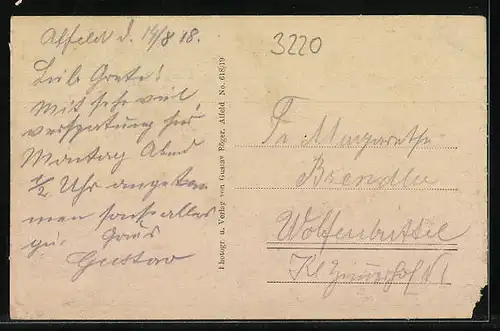 Alfeld d. 14/8 18.
Liebe Grete!
Mit sehr viel
verspätung hir
Montag Abend
1/2 Uhr angekom
men sonst alles
gut. Gruss
Gustav
Photogr. u. Verlag von Gustav Röger, Alfeld No. 618/19
3220
Fr. Margarethe
Brendler
Wolfenbüttel
Kl Zimmerhof